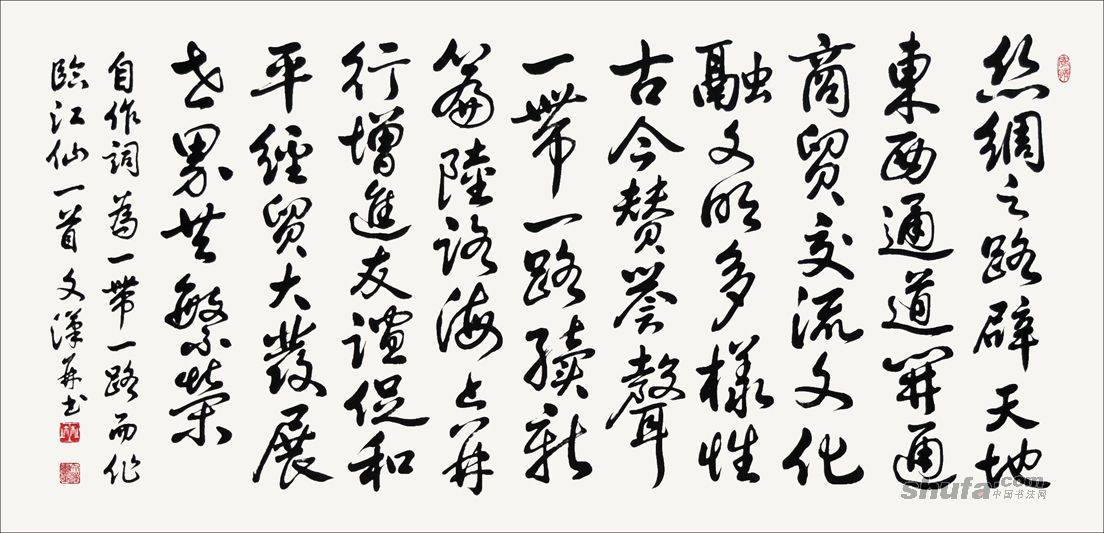 絲綢之路辟天地
東西通道開通
商貿交流文化
融文明多樣性
古今賛譽聲
一帶一路續新
篇陸路海上并
行增進友誼促和
平經貿大發展
世界共繁榮
自作詞為一帶一路而作
臨江仙一首文漢并书
shufa.com
中国书法网